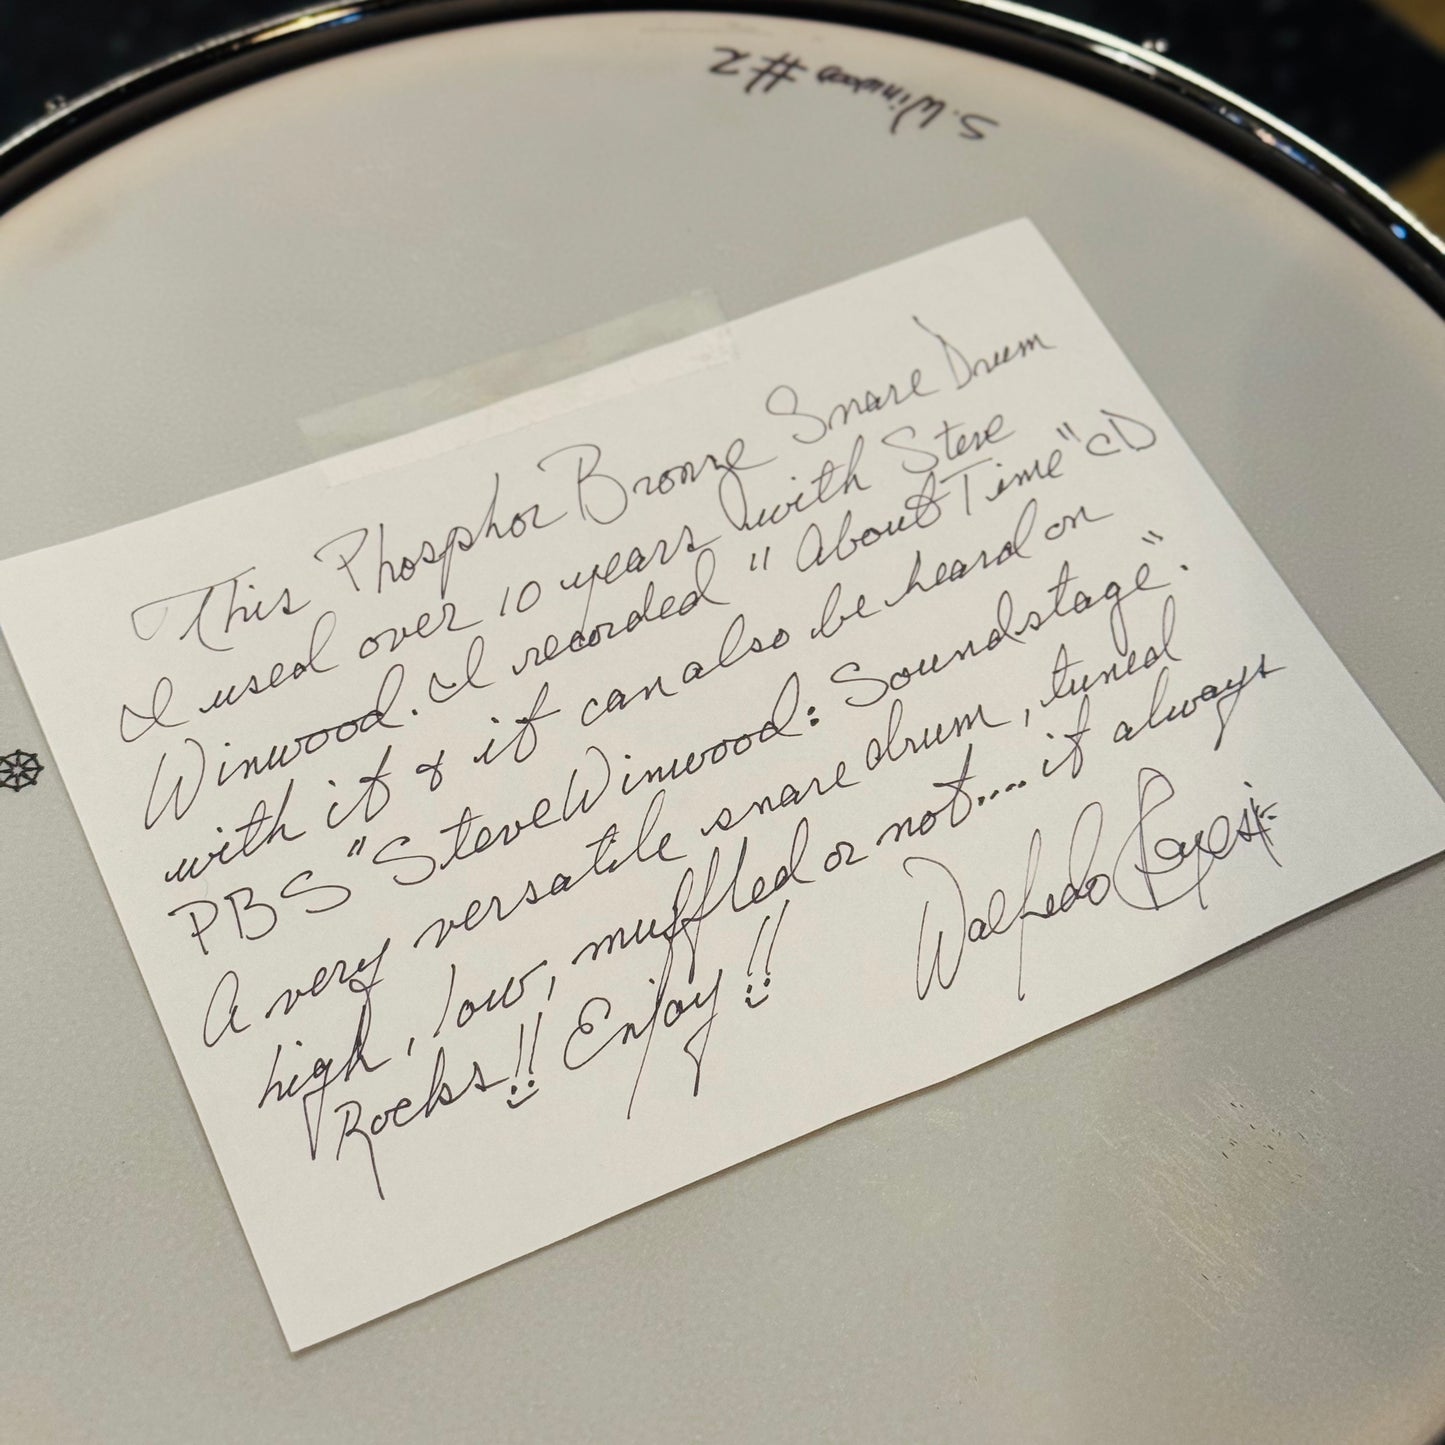 S. Winwood #2
This Phosphor Bronze Snare Drum
I used over 10 years with Steve
Winwood. I recorded "About Time" CD
with it & it can also be heard on
PBS "Steve Winwood: Soundstage".
A very versatile snare drum, tuned
high, low, muffled or not.... it always
Rocks!! Enjoy!!
Walfredo Reyes Jr.